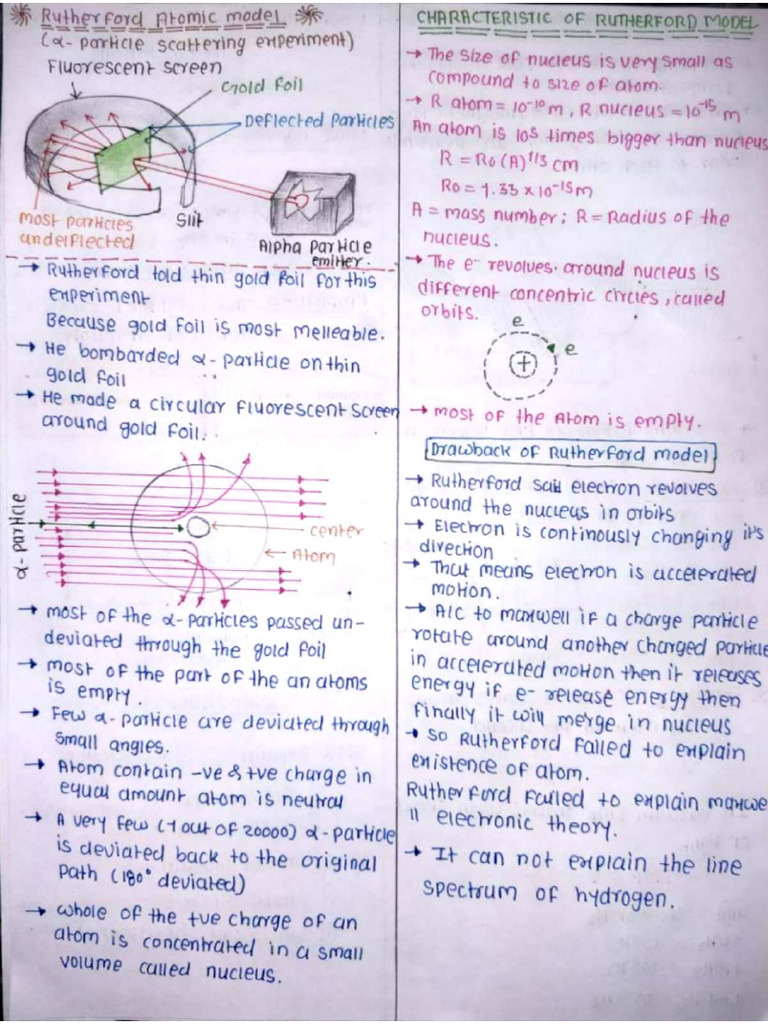 Rutherford Atomic model
(α- particle scattering experiment)
Fluorescent screen
Gold foil
Deflected Particles
most particles
undeflected
Slit
Alpha Particle
emitter.
→ Rutherford told thin gold foil for this
experiment
Because gold foil is most melleable.
→ He bombarded α- particle on thin
gold foil
→ He made a circular fluorescent screen
around gold foil.
α- particle
center
Atom
→ most of the α-particles passed un-
deviated through the gold foil
→ most of the part of the an atoms
is empty.
→ Few α-particle are deviated through
small angles.
→ Atom contain -ve & +ve charge in
equal amount atom is neutral
→ A very few (1 out of 20000) α-particle
is deviated back to the original
Path (180° deviated)
→ whole of the +ve charge of an
atom is concentrated in a small
volume called nucleus.
CHARACTERISTIC OF RUTHERFORD MODEL
→ The size of nucleus is very small as
compound to size of atom.
→ R atom = 10⁻¹⁰ m, R nucleus = 10⁻¹⁵ m
An atom is 10s times bigger than nucleus
R = Ro (A)^1/3 cm
Ro = 1.33 x 10⁻¹⁵ m
A = mass number; R = Radius of the
nucleus.
→ The e⁻ revolves around nucleus is
different concentric circles, called
orbits.
e
e
+
→ most of the Atom is empty.
Drawback of Rutherford model
→ Rutherford said electron revolves
around the nucleus in orbits
→ Electron is continously changing it's
direction
→ That means electron is accelerated
motion.
→ A/C to maxwell if a charge particle
rotate around another charged particle
in accelerated motion then it releases
energy if e- release energy then
finally it will merge in nucleus
→ So Rutherford failed to explain
existence of atom.
Rutherford failed to explain maxwe
ll electronic theory.
→ It can not explain the line
spectrum of hydrogen.